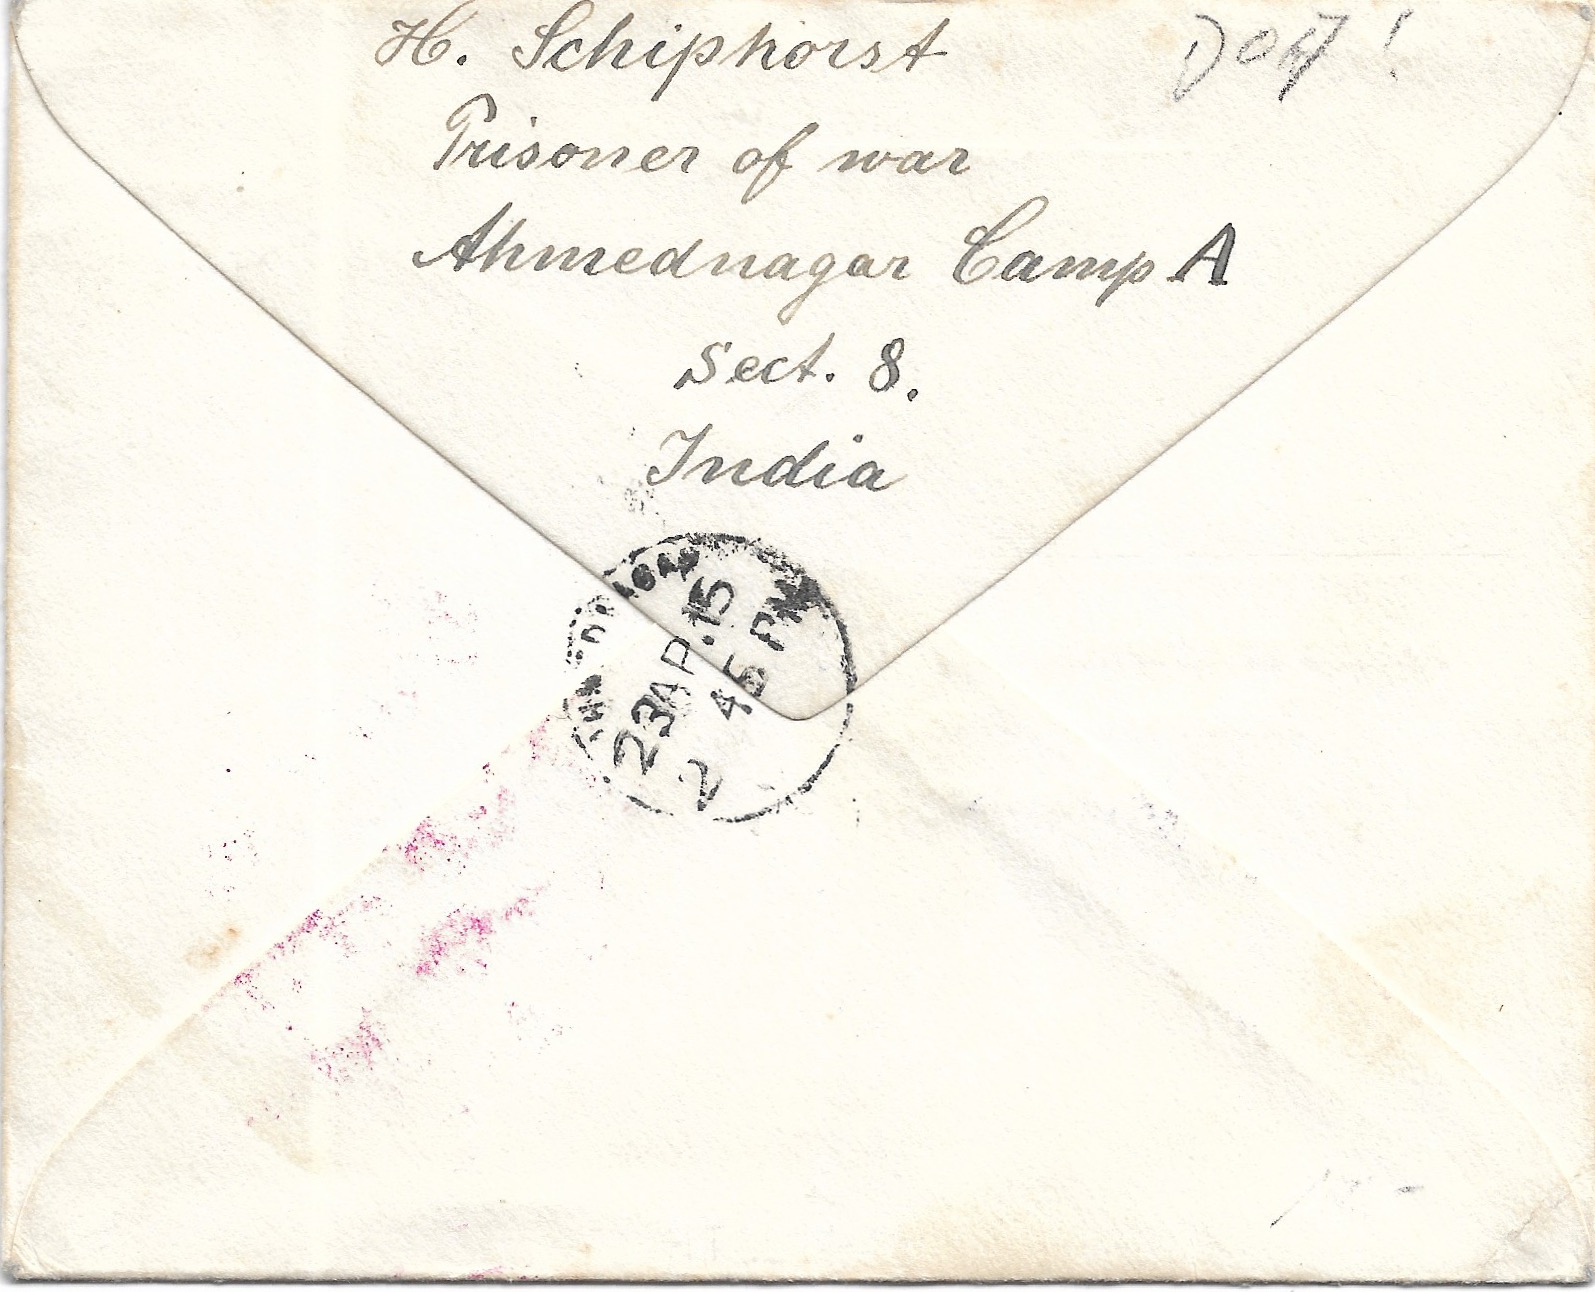 H. Schiphorst
Prisoner of war
Ahmednagar Camp A
Sect. 8.
India
23 AP. 15
2 45 PM